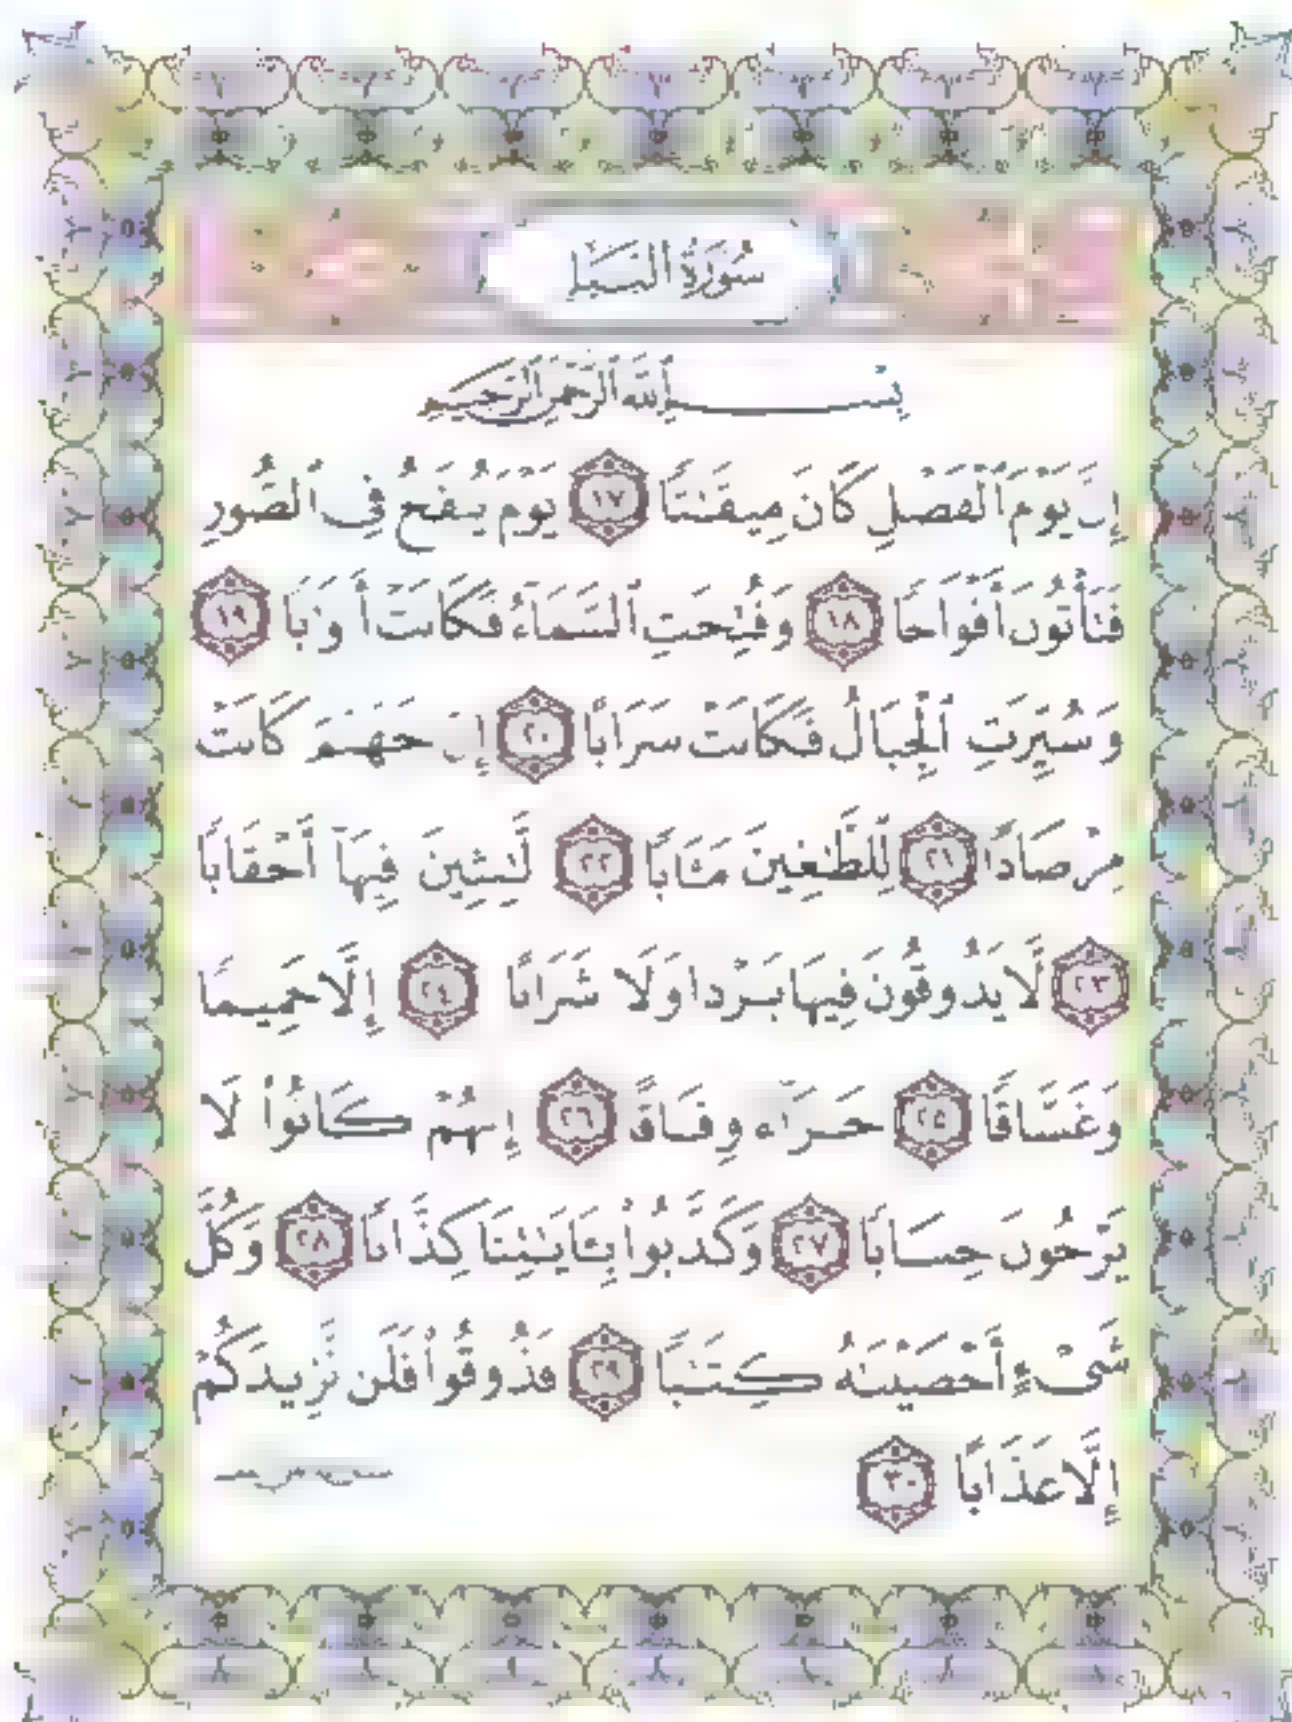 سُورَةُ النَّبَإِ
بِسْمِ ٱللَّهِ ٱلرَّحْمَٰنِ ٱلرَّحِيمِ
إِنَّ يَوْمَ ٱلْفَصْلِ كَانَ مِيقَٰتًا ١٧ يَوْمَ يُنفَخُ فِى ٱلصُّورِ
فَتَأْتُونَ أَفْوَاجًا ١٨ وَفُتِحَتِ ٱلسَّمَآءُ فَكَانَتْ أَبْوَٰبًا ١٩
وَسُيِّرَتِ ٱلْجِبَالُ فَكَانَتْ سَرَابًا ٢٠ إِنَّ جَهَنَّمَ كَانَتْ
مِرْصَادًا ٢١ لِّلطَّٰغِينَ مَـَٔابًا ٢٢ لَّٰبِثِينَ فِيهَآ أَحْقَابًا
٢٣ لَّا يَذُوقُونَ فِيهَا بَرْدًا وَلَا شَرَابًا ٢٤ إِلَّا حَمِيمًا
وَغَسَّاقًا ٢٥ جَزَآءً وِفَاقًا ٢٦ إِنَّهُمْ كَانُوا۟ لَا
يَرْجُونَ حِسَابًا ٢٧ وَكَذَّبُوا۟ بِـَٔايَٰتِنَا كِذَّابًا ٢٨ وَكُلَّ
شَىْءٍ أَحْصَيْنَٰهُ كِتَٰبًا ٢٩ فَذُوقُوا۟ فَلَن نَّزِيدَكُمْ
إِلَّا عَذَابًا ٣٠